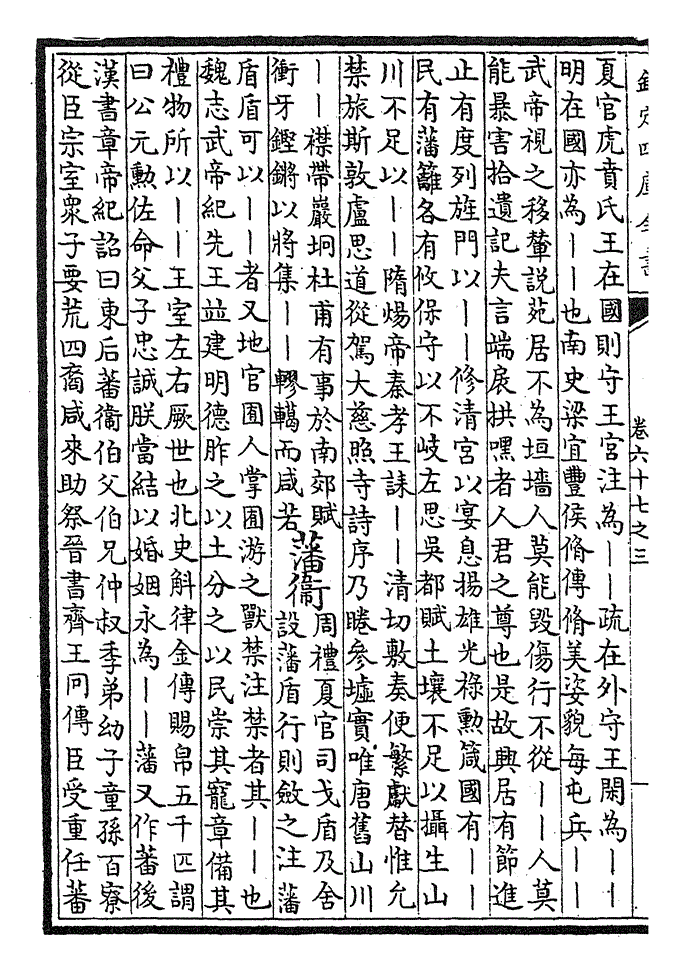 欽定四庫全書
卷六十七之三
夏官虎賁氏王在國則守王宮注為丨丨疏在外守王閑為丨丨
明在國亦為丨丨也南史梁宜豐侯脩傳脩美姿貌每屯兵丨丨
武帝視之移輦説苑居不為垣墻人莫能毀傷行不從丨丨人莫
能暴害拾遺記夫言端扆拱嘿者人君之尊也是故興居有節進
止有度列旌門以丨丨修清宮以宴息揚雄光祿勲箴國有丨丨
民有藩籬各有攸保守以不岐左思吳都賦土壤不足以攝生山
川不足以丨丨隋煬帝秦孝王誄丨丨清切敷奏便繁獻替惟允
禁旅斯敦盧思道從駕大慈照寺詩序乃睠參墟實唯唐舊山川
丨丨襟帶巖坰杜甫有事於南郊賦
衝牙鏗鏘以將集丨丨轇轕而咸若
藩衞
周禮夏官司戈盾及舍
設藩盾行則斂之注藩
盾盾可以丨丨者又地官囿人掌囿游之獸禁注禁者其丨丨也
魏志武帝紀先王並建明德胙之以土分之以民崇其寵章備其
禮物所以丨丨王室左右厥世也北史斛律金傳賜帛五千匹謂
曰公元勲佐命父子忠誠朕當結以婚姻永為丨丨藩又作蕃後
漢書章帝紀詔曰東后蕃衞伯父伯兄仲叔季弟幼子童孫百寮
從臣宗室衆子要荒四裔咸來助祭晉書齊王冏傳臣受重任蕃